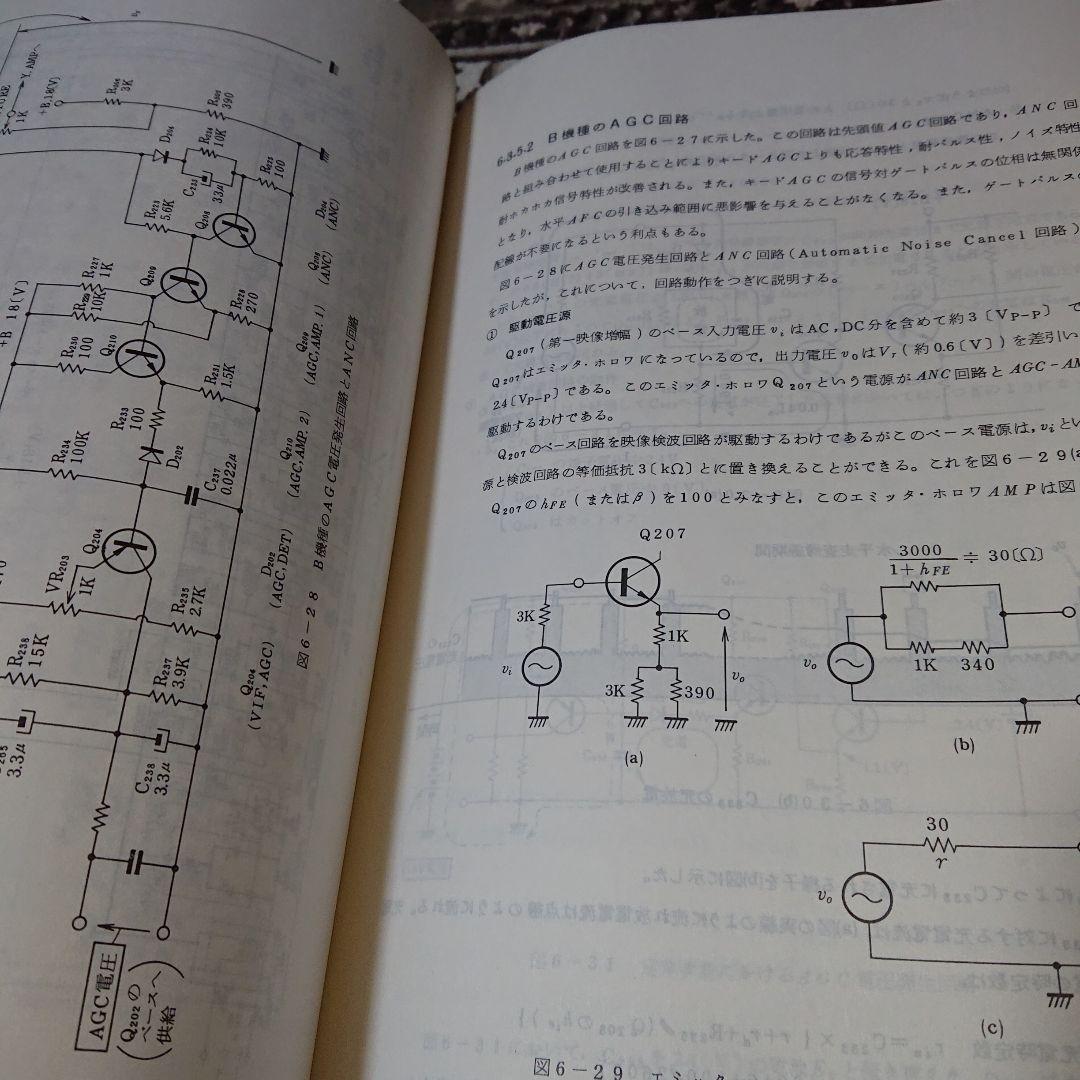 TURE
1K
Y.AMPへ
+B.18(V)
3K
390
D204
R226
10K
C235
33μ
R225
100
R223
5.6K
Q208
Q209
R227
1K
10K
R228
270
+B 18(V)
Q210
R230
100
R231
1.5K
R233
100
D202
R234
100K
C237
0.022μ
Q204
VR203
1K
R235
2.7K
R236
15K
R237
3.9K
3.3μ
C238
3.3μ
AGC電圧
(Q202の
ベースへ
供給)
D204
(ANC)
Q208
(ANC)
Q209
(AGC,AMP.1)
Q210
(AGC,AMP.2)
D202
(AGC,DET)
Q204
(VIF,AGC)
図6-28 B機種のAGC電圧発生回路とANC回路
6.3.5.2 B機種のAGC回路
B機種のAGC回路を図6-27に示した。この回路は先頭値AGC回路であり，ANC回
路と組み合わせて使用することによりキードAGCよりも応答特性，耐パルス性，ノイズ特性
耐ホカホカ信号特性が改善される。また，キードAGCの信号対ゲートパルスの位相は無関係
となり，水平AFCの引き込み範囲に悪影響を与えることがなくなる。また，ゲートパルスの
配線が不要になるという利点もある。
図6-28にAGC電圧発生回路とANC回路(Automatic Noise Cancel回路)
を示したが，これについて，回路動作をつぎに説明する。
① 駆動電圧源
Q207(第一映像増幅)のベース入力電圧viはAC,DC分を含めて約3〔VP-P〕で
Q207はエミッタ・ホロワになっているので，出力電圧voはVr(約0.6〔V〕)を差引い
2.4〔VP-P〕である。このエミッタ・ホロワQ207という電源がANC回路とAGC-AM
駆動するわけである。
Q207のベース回路を映像検波回路が駆動するわけであるがこのベース電源は，viとい
源と検波回路の等価抵抗3〔kΩ〕とに置き換えることができる。これを図6-29(a
Q207のhFE(またはβ)を100とみなすと，このエミッタ・ホロワAMPは図
Q207
3K
vi
1K
3K
390
vo
(a)
3000
1+hFE
≑ 30〔Ω〕
vo
1K 340
(b)
30
r
vo
(c)
図6-29 エミッタ